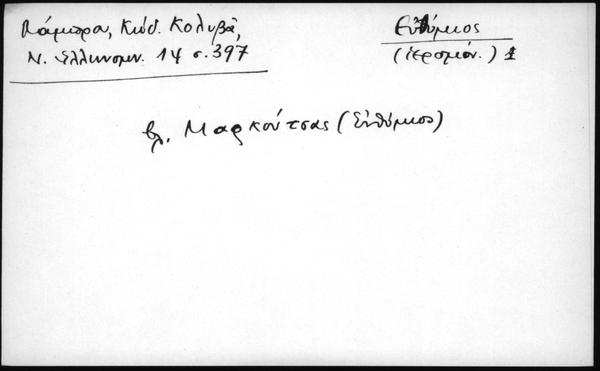 Λάμπρου, Κώδ. Κολυβᾶ,
Ν. Ἑλληνομν. 14 σ. 397
Εὐθύμιος
(ἱερομόν.) 1
βλ. Μαρκούτσας (Εὐθύμιος)